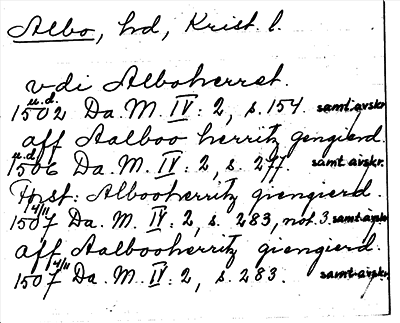 Albo, hd, Krist. l.
vdi Alboherret.
u.d.
1502 Da. M. IV: 2, s. 154. samt avskr.
aff Aalboo herritz gengierd.
u.d.
1506 Da. M. IV: 2, s. 277. samt avskr.
Albooherritz giengierd.
4/11
1507 Da. M. IV: 2, s. 283, not 3. samt avskr.
aff Aalbooherritz giengierd.
4/11
1507 Da. M. IV: 2, s. 283. samt avskr.